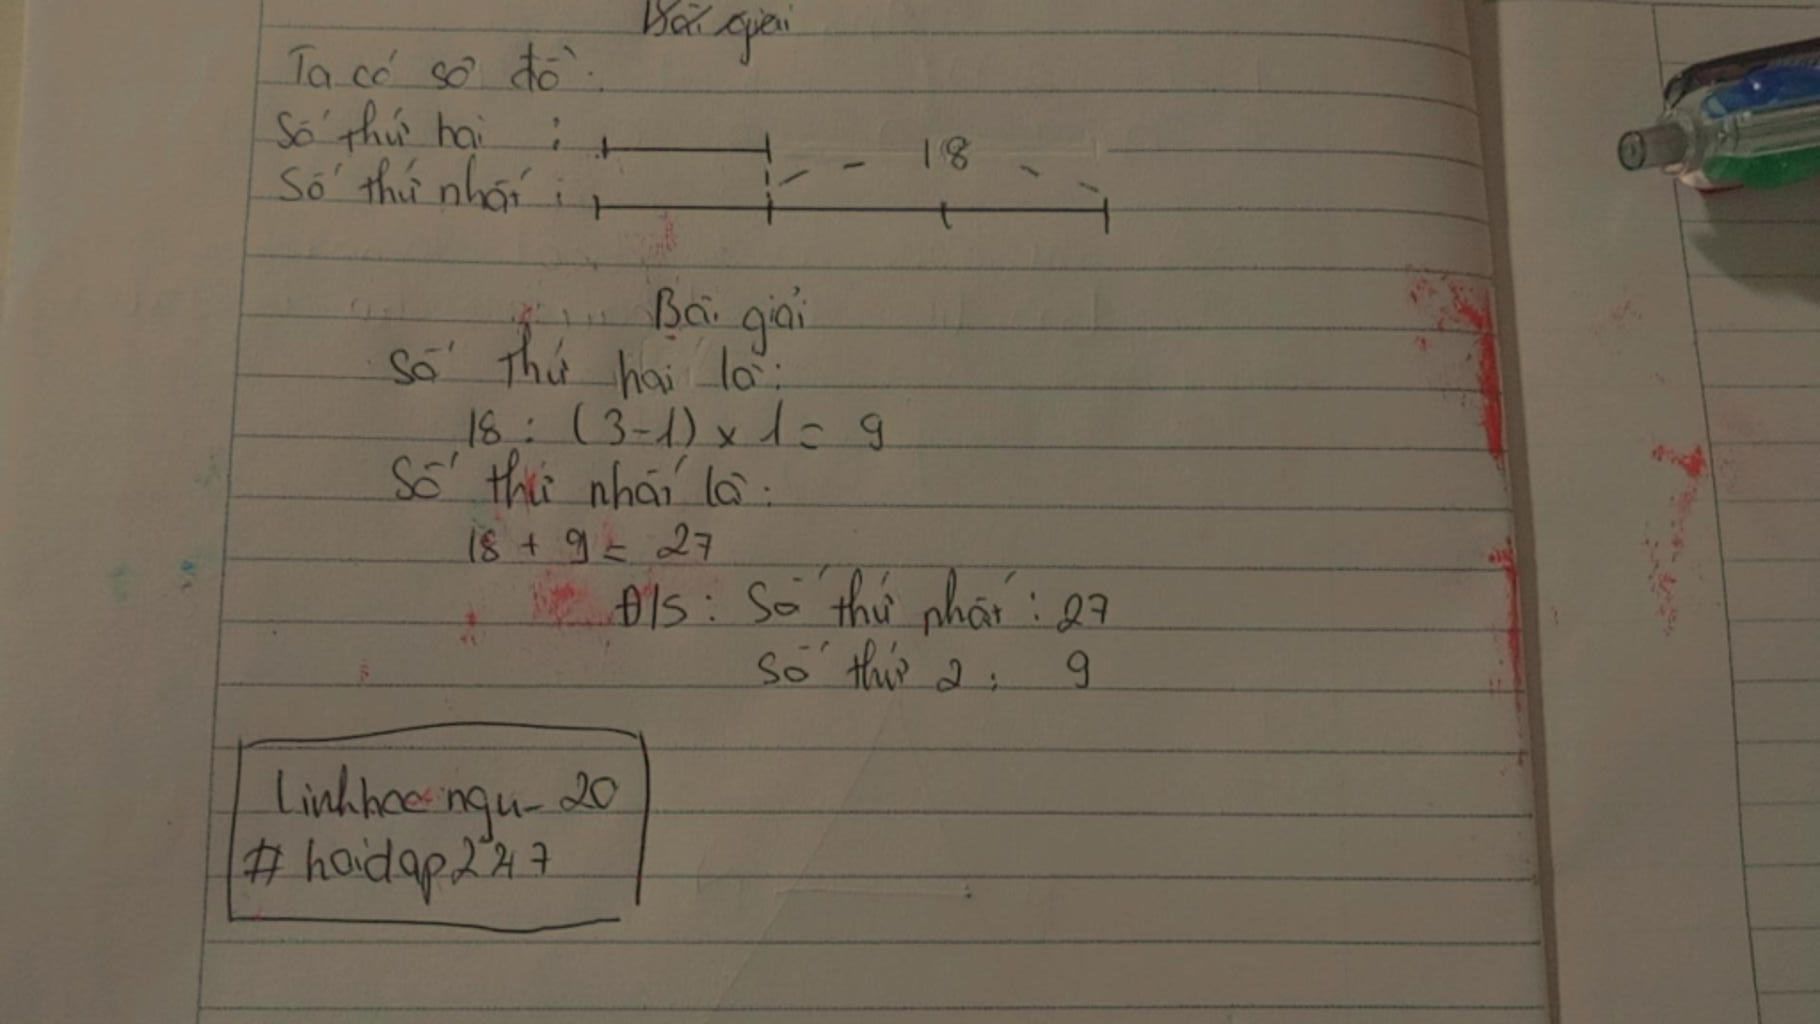 Bài giải
Ta có sơ đồ:
Số thứ hai :
18
Số thứ nhất :
Bài giải
Số thứ hai là:
18 : (3-1) x 1 = 9
Số thứ nhất là:
18 + 9 = 27
Đ/S: Số thứ nhất: 27
Số thứ 2: 9
linhhocngu-20
# hoidap247